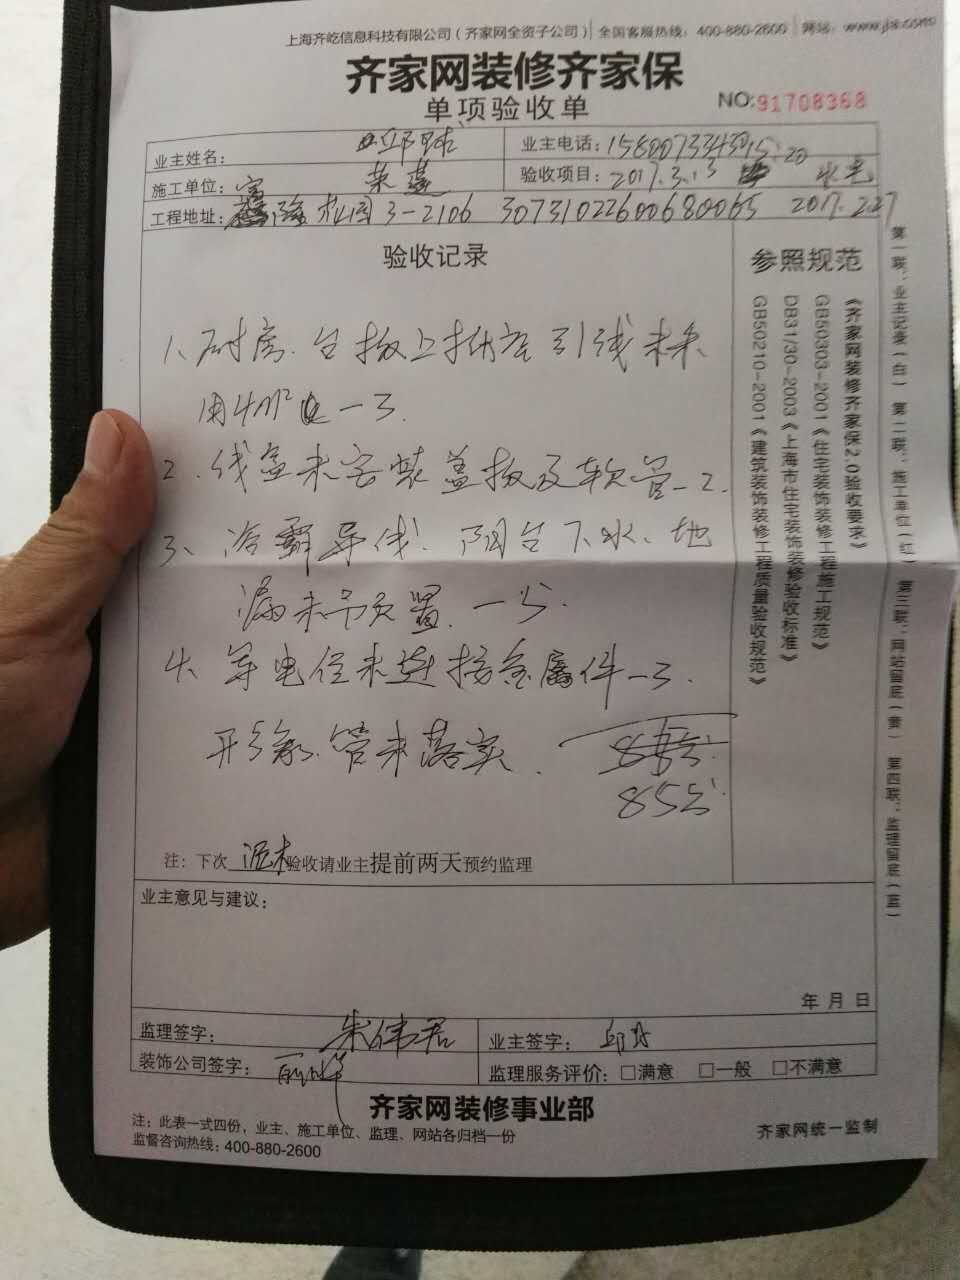 上海齐屹信息科技有限公司（齐家网全资子公司）| 全国客服热线：400-880-2600 | 网站：www.jia.com
齐家网装修齐家保
单项验收单
NO:91708368
业主姓名：
业主电话：
施工单位：
验收项目：2017.3.13 水电
工程地址： 松园3-2106 30731022600680065 2017.2.27
验收记录
1、厨房、台板上插座引线未采
用4m² 一3.
2、线盒未安装盖板及软管一2.
3、浴霸导线、阳台下水、地
漏未予负置、一5.
4、等电位未连接金属件一3.
形象、管未落实、
85分
注：下次 泥木 验收请业主提前两天预约监理
参照规范
《齐家网装修齐家保2.0验收要求》
GB50303-2001《住宅装饰装修工程施工规范》
DB31/30-2003《上海市住宅装饰装修验收标准》
GB50210-2001《建筑装饰装修工程质量验收规范》
第一联：业主记录（白） 第二联：施工单位（红） 第三联：网站留底（黄） 第四联：监理留底（蓝）
业主意见与建议：
年 月 日
监理签字： 朱伟君
业主签字：
装饰公司签字：
监理服务评价：□满意 □一般 □不满意
齐家网装修事业部
注：此表一式四份，业主、施工单位、监理、网站各归档一份
监督咨询热线：400-880-2600
齐家网统一监制